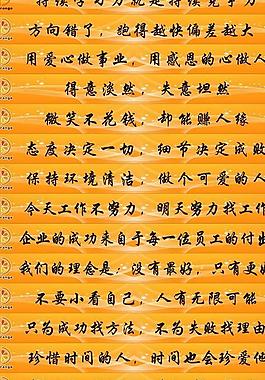 持续学习力就是持续竞争力
方向错了，跑得越快偏差越大
用爱心做事业，用感恩的心做人
得意淡然，失意坦然
微笑不花钱，却能赚人缘
态度决定一切，细节决定成败
保持环境清洁，做个可爱的人
今天工作不努力，明天努力找工作
企业的成功来自于每一位员工的付出
我们的理念是：没有最好，只有更好
不要小看自己，人有无限可能
只为成功找方法，不为失败找理由
珍惜时间的人，时间也会珍爱他